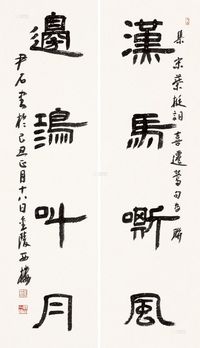 漢馬嘶風
邊鴻叫月
集宋蔡挺詞喜遷鶯句為聯
尹石書於己丑正月十八日金陵西樓